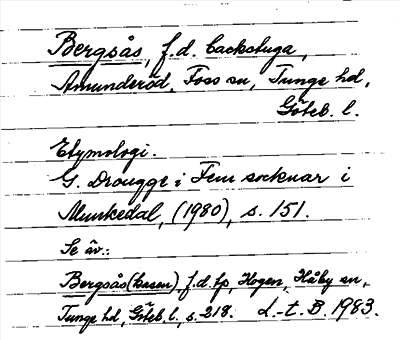 Bergsås, f.d. backstuga,
Amunderöd, Foss sn, Tunge hd,
Göteb. l.
Etymologi.
G. Drougge i Fem socknar i
Munkedal, (1980), s. 151.
Se äv.:
Bergsås (kasen) f.d. tp, Hogen, Håby sn,
Tunge hd, Göteb. l., s. 218. L.-t. B. 1983.